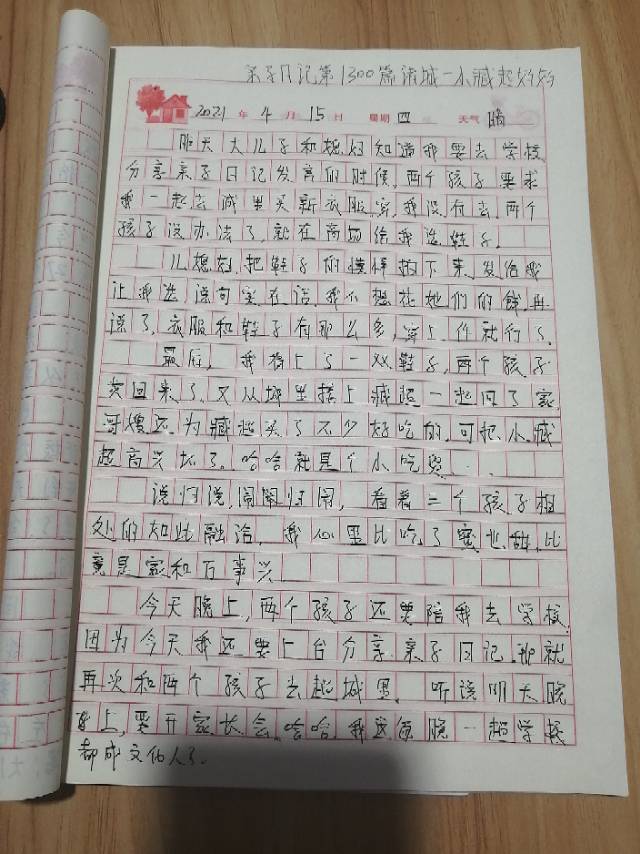 亲子日记第1300篇诸城一小臧超妈妈
2021年4月15日 星期四 天气晴
昨天大儿子和媳妇知道我要去学校
分享亲子日记发言的时候,两个孩子要求
我一起去城里买新衣服穿,我没有去,两个
孩子没办法了,就在商场给我选鞋子。
儿媳妇把鞋子的模样拍下来,发给我
让我选,说句实在话,我不想花她们的钱,再
说了,衣服和鞋子有那么多,穿上件就行了。
最后,我看上了一双鞋子,两个孩子
买回来了,又从城里接上臧超一起回了家,
哥嫂还为臧超买了不少好吃的,可把小臧
超高兴坏了。哈哈就是个小吃货..
说归说,闹闹归闹,看着二个孩子相
处的如此融洽,我心里比吃了蜜也甜,比
竟是家和万事兴
今天晚上,两个孩子还要陪我去学校,
因为今天我还要上台分享亲子日记,那就
再次和两个孩子去趟城里。听说明天晚
上,要开家长会,哈哈我这俩晚一起学校
都成文化人了。